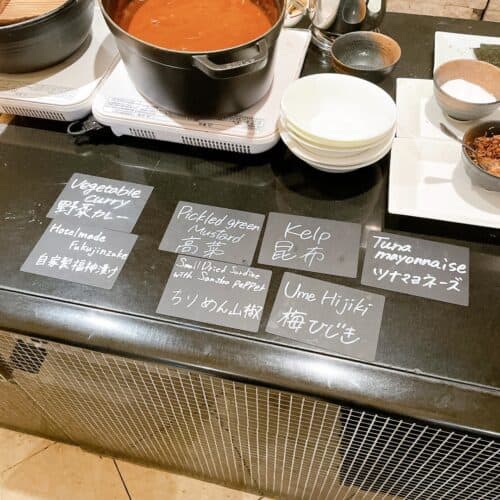 Vegetable
curry
野菜カレー
Hotelmade
Fukujinzuke
自家製福神漬け
Pickled green
Mustard
高菜
Small Dried Sardine
with Sansho Pepper
ちりめん山椒
Kelp
昆布
Ume Hijiki
梅ひじき
Tuna
mayonnaise
ツナマヨネーズ